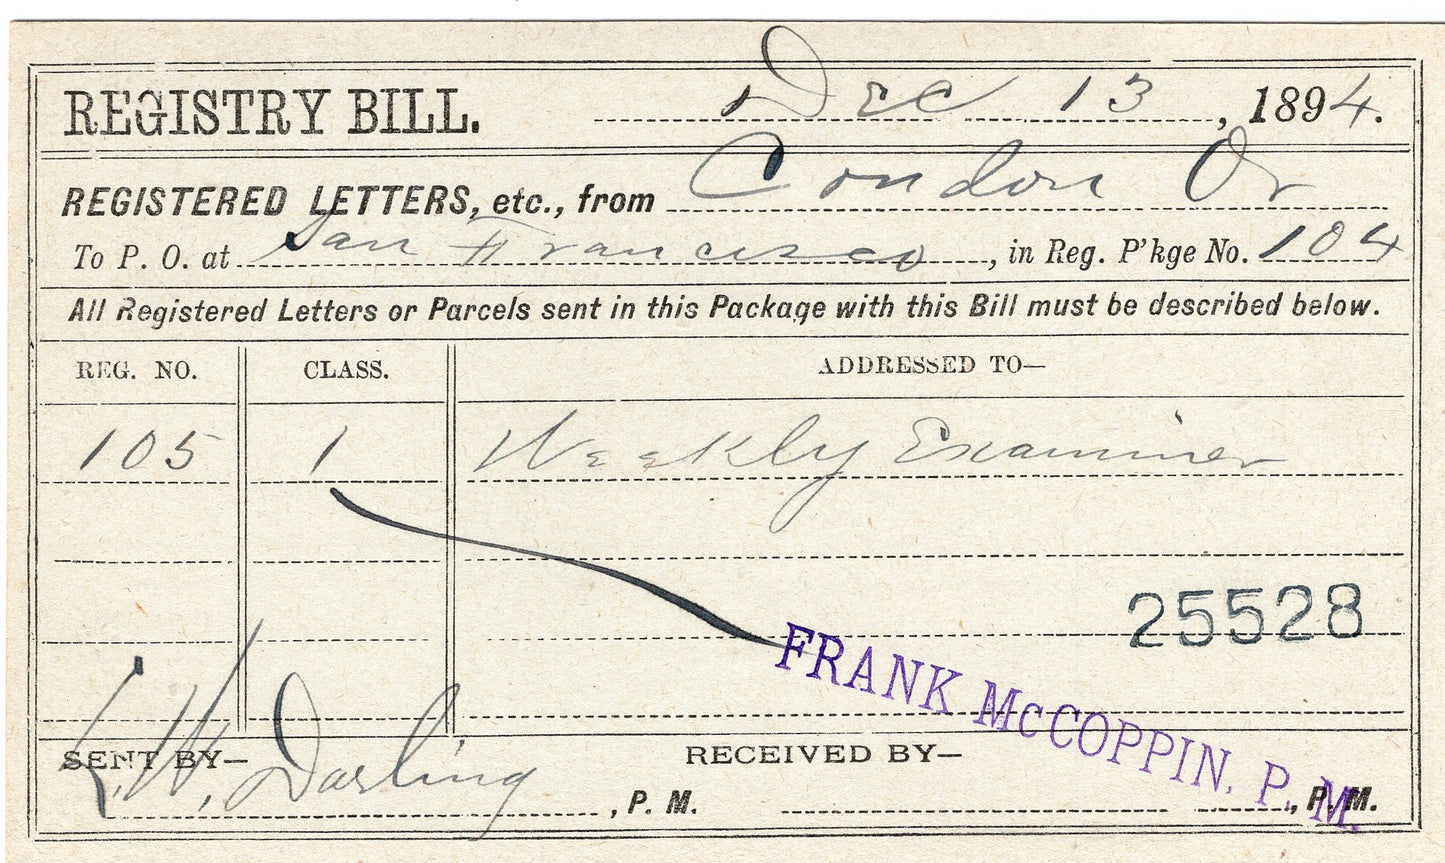 REGISTRY BILL. Dec 13, 1894.
REGISTERED LETTERS, etc., from Condon Or
To P. O. at San Francisco, in Reg. P'kge No. 104
All Registered Letters or Parcels sent in this Package with this Bill must be described below.
REG. NO. CLASS. ADDRESSED TO—
105 1 Weekly Examiner
25528
FRANK McCOPPIN, P. M.
SENT BY— RECEIVED BY—
W. Darling, P. M. , P. M.